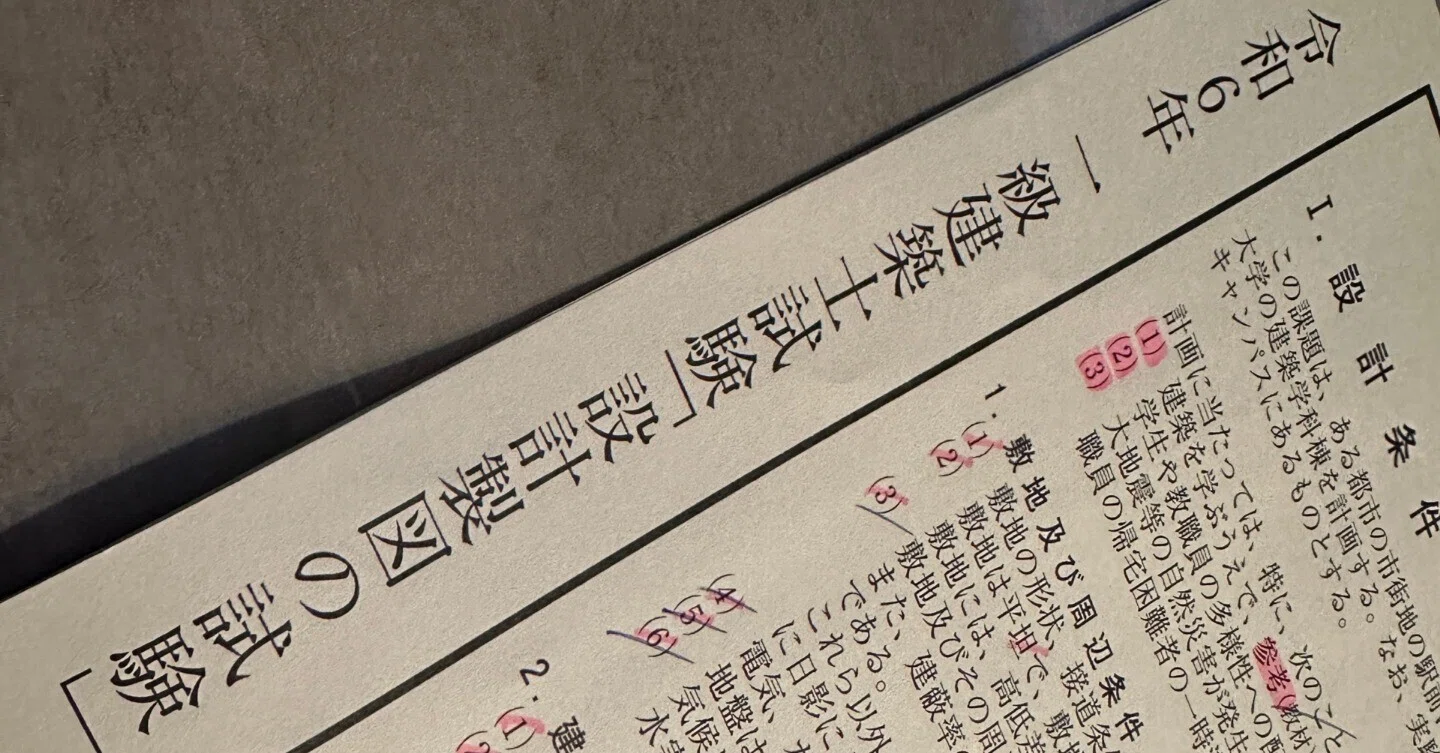 令和6年 一級建築士試験「設計製図の試験」
I. 設計条件
この課題は、ある都市の市街地の駅前
大学の建築学科棟を計画する。なお、実
キャンパスにあるものとする。
計画に当たっては、特に、次のこと
(1) 建築を学ぶうえで、参考(教材
(2) 学生や教職員の多様性への配
(3) 大地震等の自然災害が発生
職員の帰宅困難者の一時
1. 敷地及び周辺条件
(1) 敷地の形状、接道条件
(2) 敷地は平坦で、敷
敷地には、高低差
(3) 敷地及びその周
また、建蔽率
である。
これら以外
に日影に
(4) 電気、
(5) 地盤は
(6) 気候
水
2. 建
(1)
(2